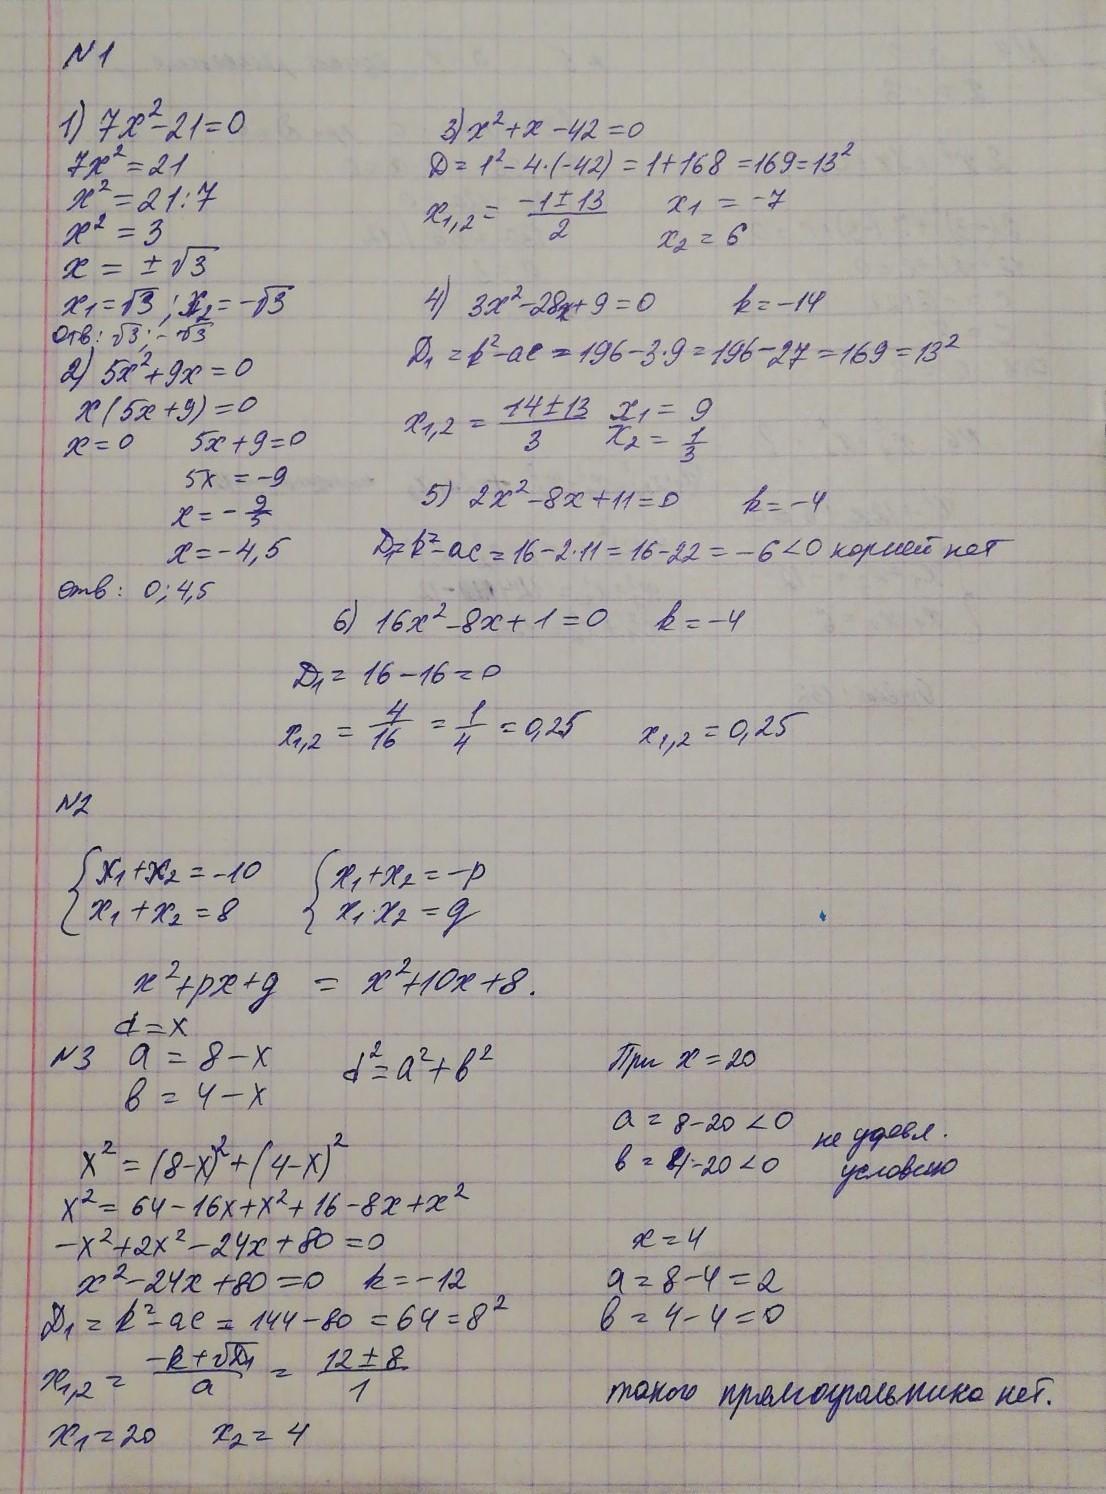 N1
1) 7x²-21=0
7x²=21
x²=21:7
x²=3
x=±√3
x₁=√3; x₂=-√3
Отв: √3; -√3
2) 5x²+9x=0
x(5x+9)=0
x=0 5x+9=0
5x=-9
x=-9/5
x=-4,5
отв: 0; 4,5
3) x²+x-42=0
D=1²-4·(-42)=1+168=169=13²
x₁,₂=(-1±13)/2 x₁=-7
x₂=6
4) 3x²-28x+9=0 k=-14
D₁=k²-ac=196-3·9=196-27=169=13²
x₁,₂=(14±13)/3 x₁=9
x₂=1/3
5) 2x²-8x+11=0 k=-4
D₁=k²-ac=16-2·11=16-22=-6<0 корней нет
6) 16x²-8x+1=0 k=-4
D₁=16-16=0
x₁,₂=4/16=1/4=0,25 x₁,₂=0,25
N2
{x₁+x₂=-10 {x₁+x₂=-p
x₁+x₂=8 x₁·x₂=g
x²+px+g = x²+10x+8.
d=x
N3 a=8-x d²=a²+b²
b=4-x
x²=(8-x)²+(4-x)²
x²=64-16x+x²+16-8x+x²
-x²+2x²-24x+80=0
x²-24x+80=0 k=-12
D₁=k²-ac=144-80=64=8²
x₁,₂=(-k+√D₁)/a=(12±8)/1
x₁=20 x₂=4
При x=20
a=8-20<0 не удовл.
b=4-20<0 условию
x=4
a=8-4=2
b=4-4=0
такого прямоугольника нет.